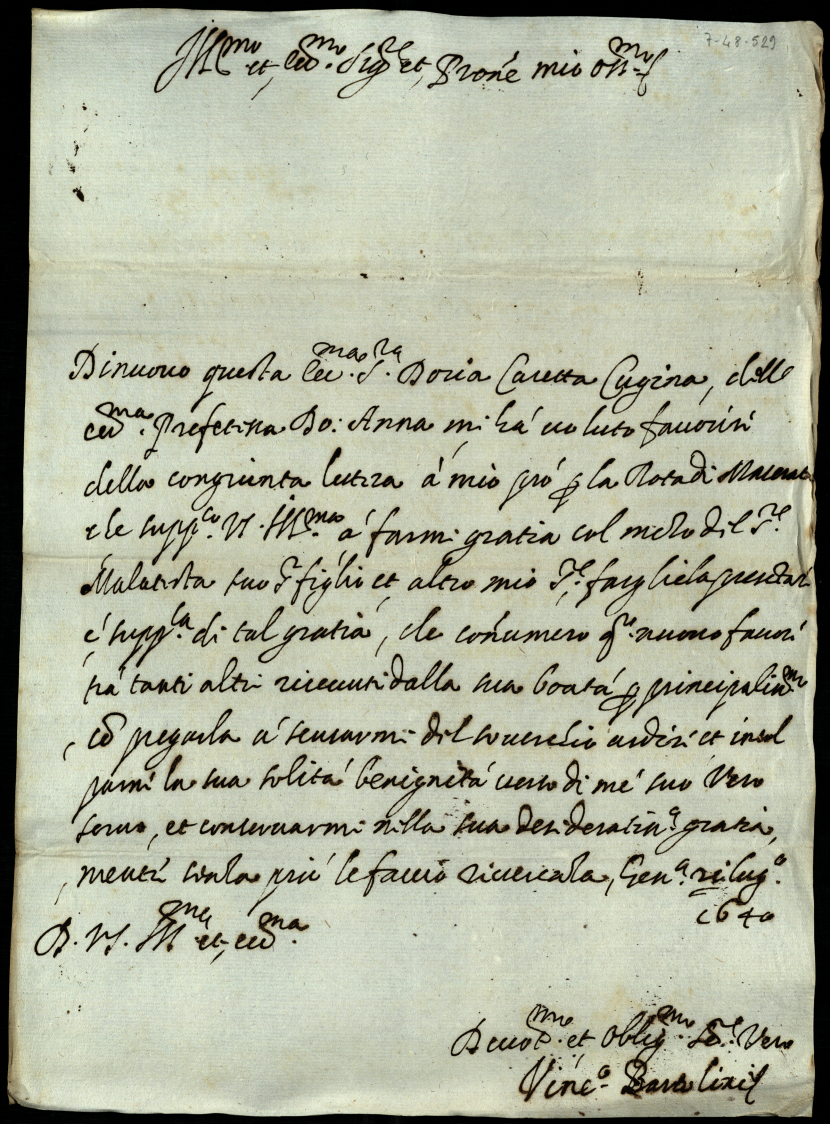 7-48-529
Ill.mo et, Ecc.mo Sig.re et, Prone mio oss.mo
Di nuovo questa Ecc.ma S.ra Doria Caretta Cugina, delle
ecc.ma Prefetessa Do: Anna mi há voluto favorir
della congiunta lettera á mio pró p la Rota di Macerata
che supp.co VS. Ill.ma á farmi gratia col mezo del S.re
Malatesta suo S.r figlio et, altro mio S.re
é supp.la di tal gratia, che connumero q.to nuovo favor
trá tanti altri ricevuti dalla sua bontá p principaliss.mo
, co pregarla á scusarmi del soverchio ardire et in
la sua solita benignitá verso di mé suo Vero
servo, et conservarmi nella sua desideratiss.a gratia,
, mentr senza piú le faccio riverenza, Gen.a lug.o
1640
D. VS. Ill.ma et, ecc.ma
Devot.mo et oblig.mo Se.re Vero
Vinc.o